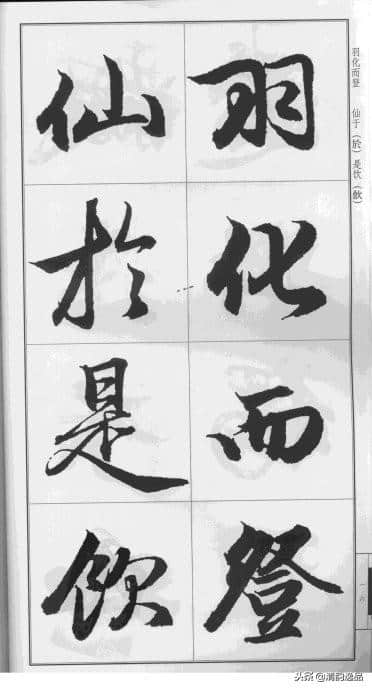 羽化而登
仙於是飲
羽化而登　仙于（於）是饮（飲）
一六
头条@清韵逸品